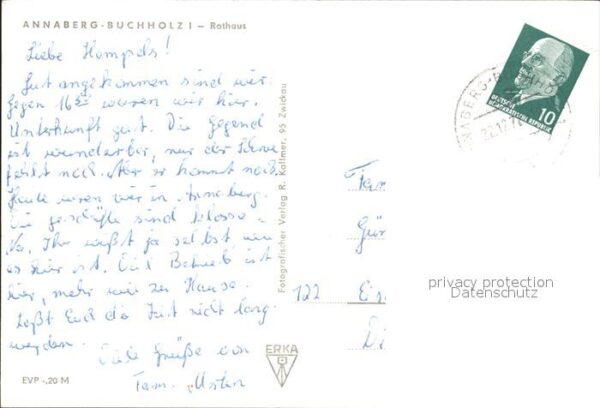 ANNABERG-BUCHHOLZ I – Rathaus
Liebe Hempels!
Gut angekommen sind wir.
Gegen 16 waren wir hier.
Unterkunft gut. Die Gegend
ist wunderbar, nur der Schnee
fehlt noch. Aber er kommt noch.
Heute waren wir in Annaberg.
Die Geschäfte sind klasse.
Na, Ihr wißt ja selbst, wie
es hier ist. Und Betrieb ist
hier, mehr wie zu Hause.
Laßt Euch die Zeit nicht lang
werden.
Viele Grüße von
Fam.
EVP -,20 M
Fotografischer Verlag R. Kallmer, 95 Zwickau
ERKA
DEUTSCHE
DEMOKRATISCHE REPUBLIK
10
Fam
122
privacy protection
Datenschutz